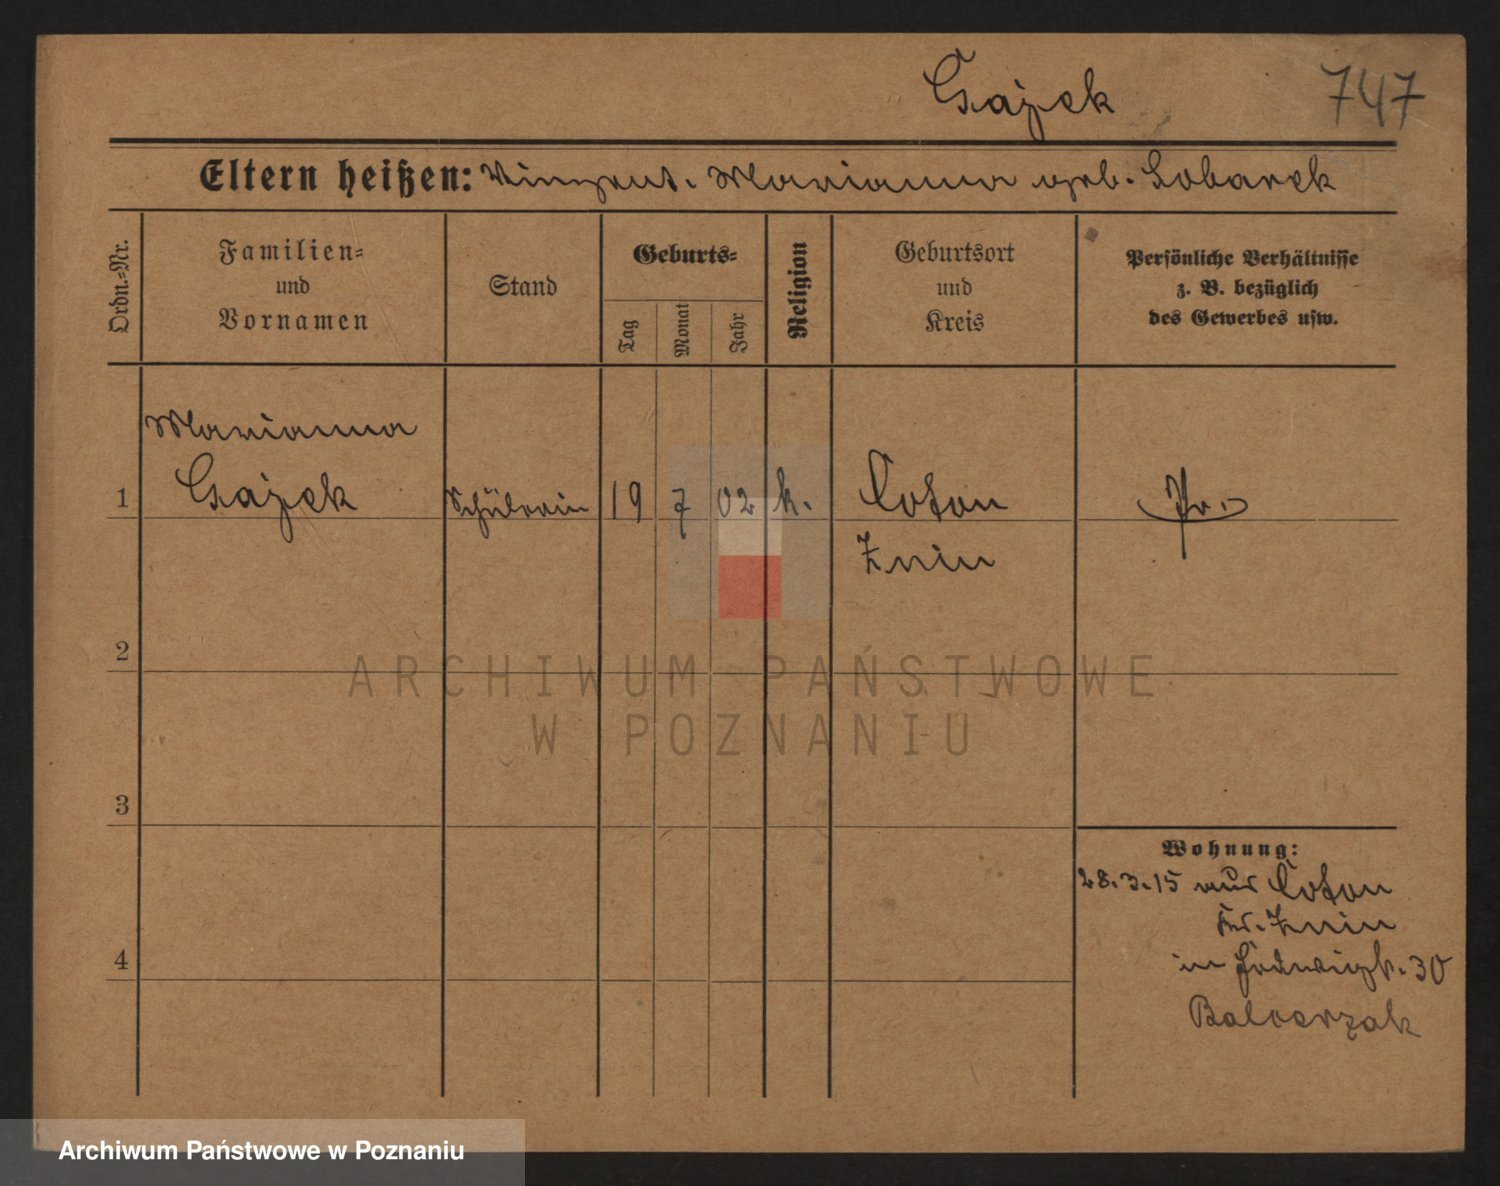 Gajek
747
Eltern heißen: Vinzent. Marianna geb. Lobarek
Ordn.-Nr.
Familien-
und
Vornamen
Stand
Geburts-
Tag
Monat
Jahr
Religion
Geburtsort
und
Kreis
Persönliche Verhältnisse
z. B. bezüglich
des Gewerbes usw.
Marianna
1 Gajek Schülerin 19 7 02 k. Coton Pr.
Znin
2
3
4
Wohnung:
28.3.15 aus Coton
Kr. Znin
in Hedwigst. 30
Balcerzak
ARCHIWUM PAŃSTWOWE
W POZNANIU
Archiwum Państwowe w Poznaniu